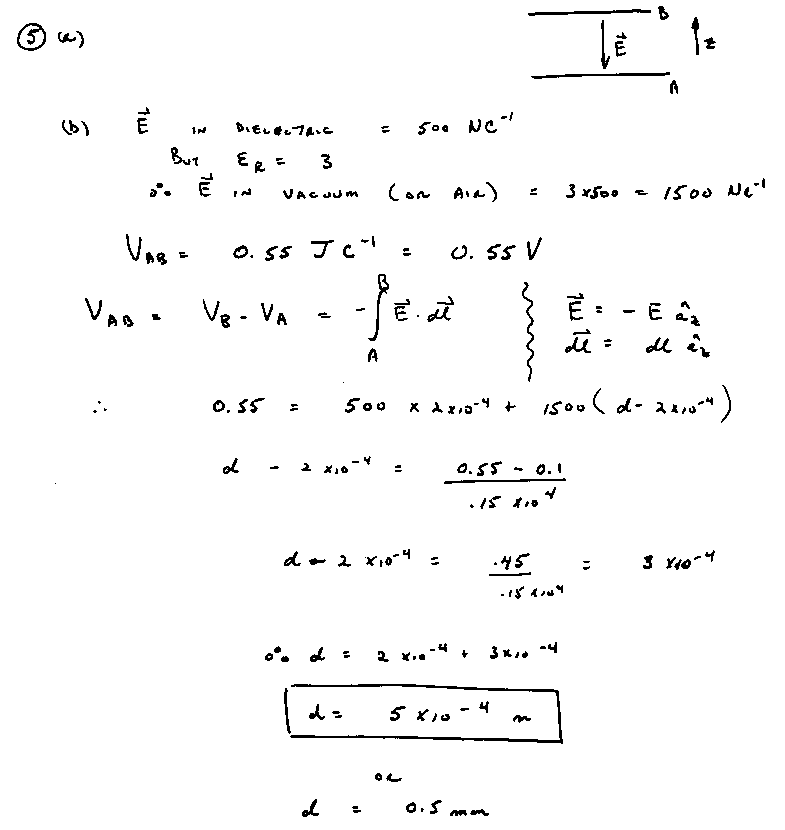 ⑤ (a)
B
E⃗
z
A
(b) E⃗ IN DIELECTRIC = 500 NC⁻¹
BUT ε_R = 3
∴ E⃗ IN VACUUM (OR AIR) = 3x500 = 1500 NC⁻¹
V_AB = 0.55 J C⁻¹ = 0.55 V
V_AB = V_B - V_A = -∫_A^B E⃗ · dl⃗
E⃗ = - E â_z
dl⃗ = dl â_z
∴ 0.55 = 500 x 2x10⁻⁴ + 1500 (d - 2x10⁻⁴)
d - 2 x10⁻⁴ = 0.55 - 0.1 / .15 x10⁴
d - 2 x10⁻⁴ = .45 / .15 x10⁴ = 3 x10⁻⁴
∴ d = 2 x10⁻⁴ + 3x10⁻⁴
d = 5 x10⁻⁴ m
OR
d = 0.5 mm